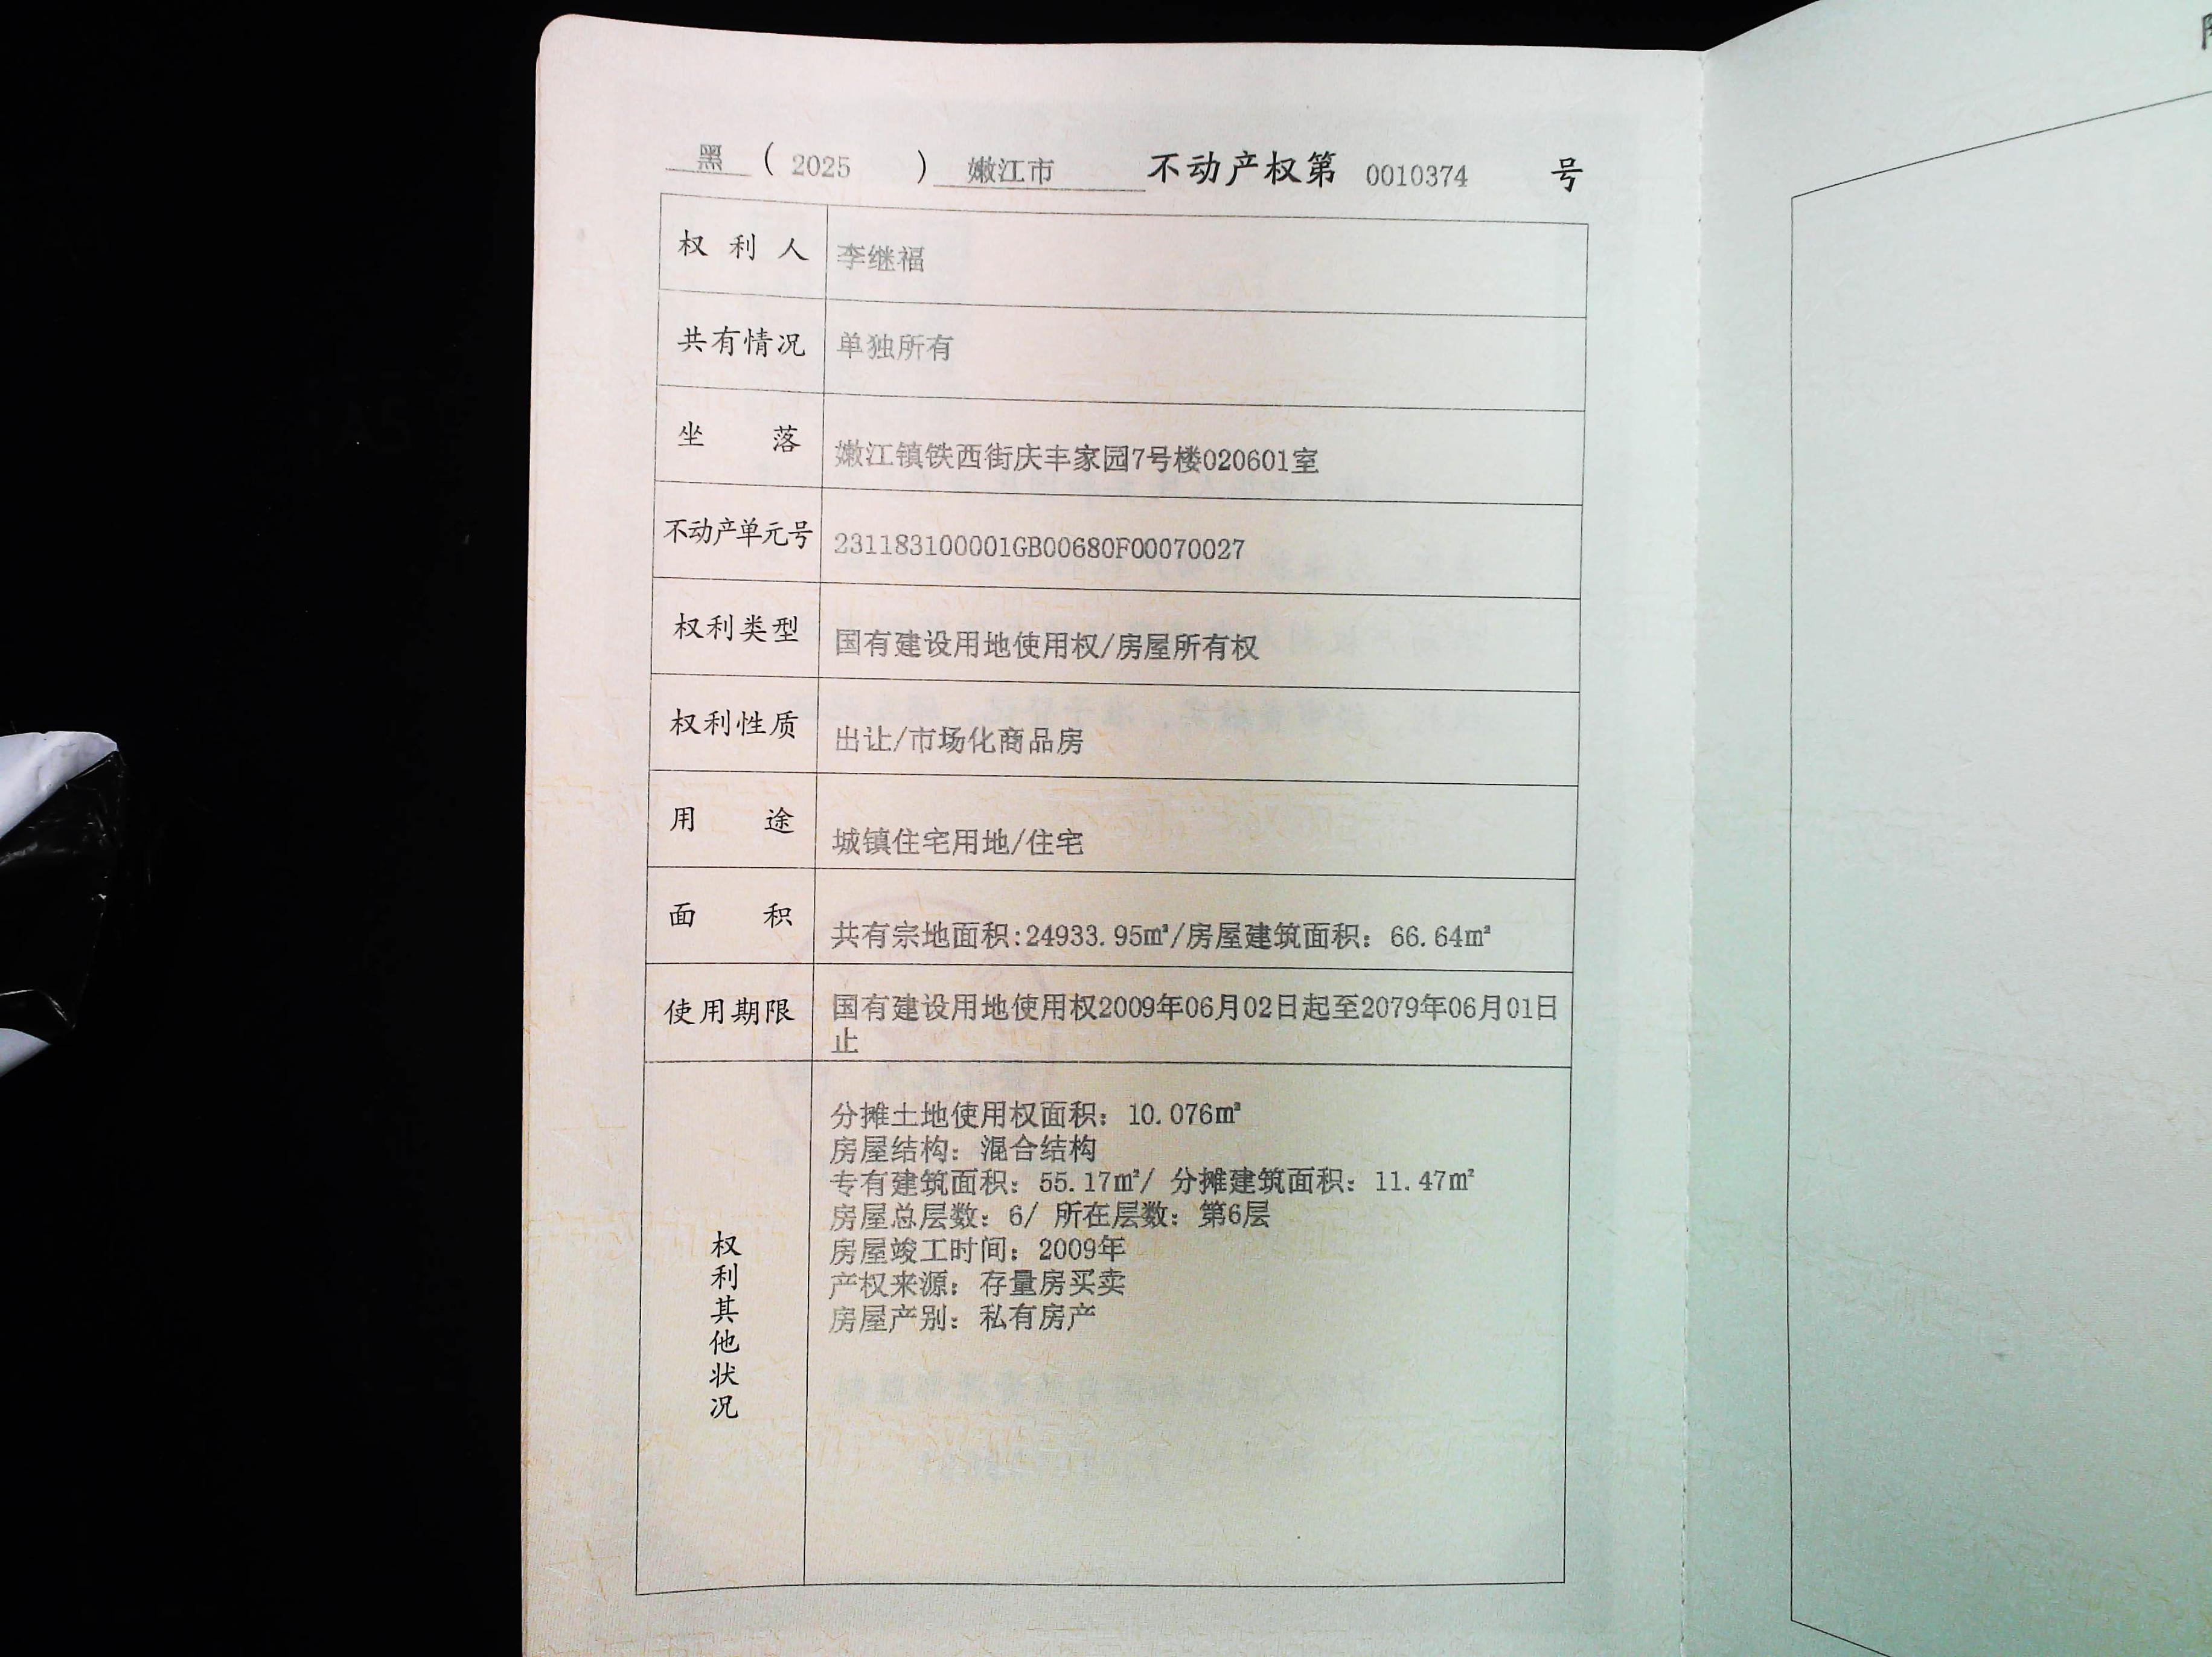 黑 ( 2025 ) 嫩江市 不动产权第 0010374 号
权利人 李继福
共有情况 单独所有
坐落 嫩江镇铁西街庆丰家园7号楼020601室
不动产单元号 231183100001GB00680F00070027
权利类型 国有建设用地使用权/房屋所有权
权利性质 出让/市场化商品房
用途 城镇住宅用地/住宅
面积 共有宗地面积:24933.95㎡/房屋建筑面积：66.64㎡
使用期限 国有建设用地使用权2009年06月02日起至2079年06月01日
止
权利其他状况
分摊土地使用权面积：10.076㎡
房屋结构：混合结构
专有建筑面积：55.17㎡/ 分摊建筑面积：11.47㎡
房屋总层数：6/ 所在层数：第6层
房屋竣工时间：2009年
产权来源：存量房买卖
房屋产别：私有房产